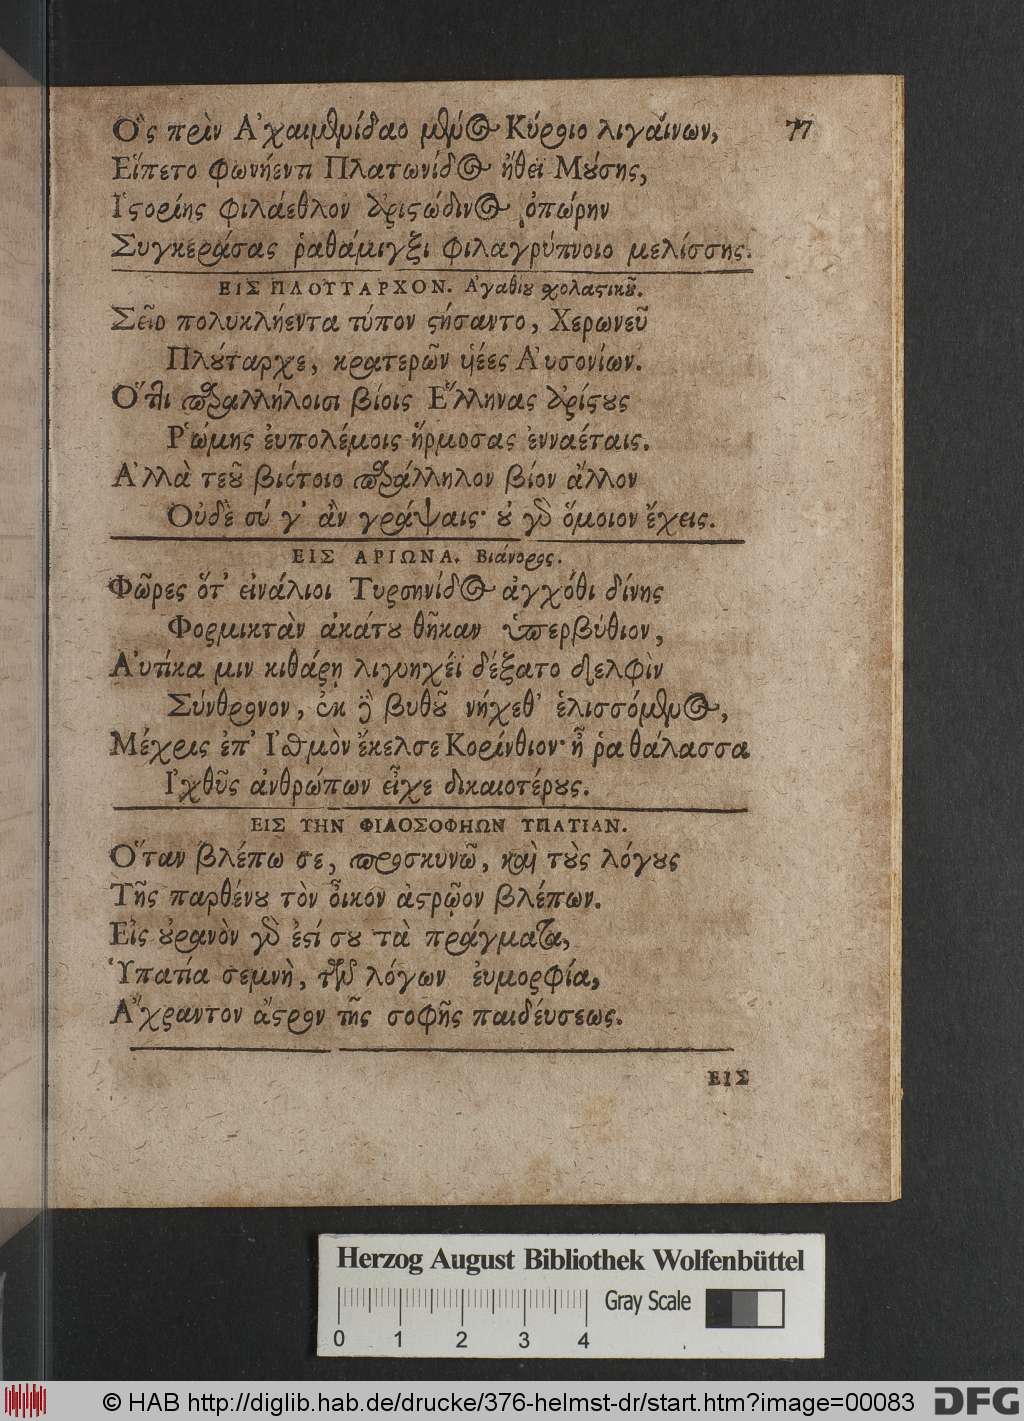 Ὃς πρὶν Ἀχαιμενίδαο μένος Κύροιο λιγαίνων, 77
Εἵπετο φωνήεντι Πλατωνίδος ἤθεϊ Μούσης,
Ἱστορίης φιλάεθλον ἀριστώδινος ὀπώρην
Συγκεράσας ῥαθάμιγξι φιλαγρύπνοιο μελίσσης.
ΕΙΣ ΠΛΟΥΤΑΡΧΟΝ. Ἀγαθίου σχολαστικοῦ.
Σεῖο πολυκλήεντα τύπον στήσαντο, Χερωνεῦ
Πλούταρχε, κρατερῶν υἱέες Αὐσονίων.
Ὅττι παραλλήλοισι βίοις Ἕλληνας ἀρίστους
Ῥώμης εὐπολέμοις ἥρμοσας ἐνναέταις.
Ἀλλὰ τεοῦ βιότοιο παράλληλον βίον ἄλλον
Οὐδὲ σύ γ' ἂν γράψαις· οὐ γὰρ ὅμοιον ἔχεις.
ΕΙΣ ΑΡΙΩΝΑ. Βιάνορος.
Φῶρες ὅτ' εἰνάλιοι Τυρσηνίδος ἀγχόθι δίνης
Φορμικτὰν ἀκάτου θῆκαν ὑπερβύθιον,
Αὐτίκα μιν κιθάρῃ λιγυηχέϊ δέξατο δελφὶν
Σύνθρονον, ἐκ δὲ βυθοῦ νήχεθ' ἑλισσόμενος,
Μέχρις ἐπ' Ἰσθμὸν ἔκελσε Κορίνθιον· ἦ ῥα θάλασσα
Ἰχθῦς ἀνθρώπων εἶχε δικαιοτέρους.
ΕΙΣ ΤΗΝ ΦΙΛΟΣΟΦΗΩΝ ΥΠΑΤΙΑΝ.
Ὅταν βλέπω σε, προσκυνῶ, καὶ τοὺς λόγους
Τῆς παρθένου τὸν οἶκον ἀστρῷον βλέπων.
Εἰς οὐρανὸν γὰρ ἐστί σου τὰ πράγματα,
Ὑπατία σεμνὴ, τῶν λόγων εὐμορφία,
Ἄχραντον ἄστρον τῆς σοφῆς παιδεύσεως.
ΕΙΣ
Herzog August Bibliothek Wolfenbüttel
Gray Scale
0 1 2 3 4
© HAB http://diglib.hab.de/drucke/376-helmst-dr/start.htm?image=00083 DFG